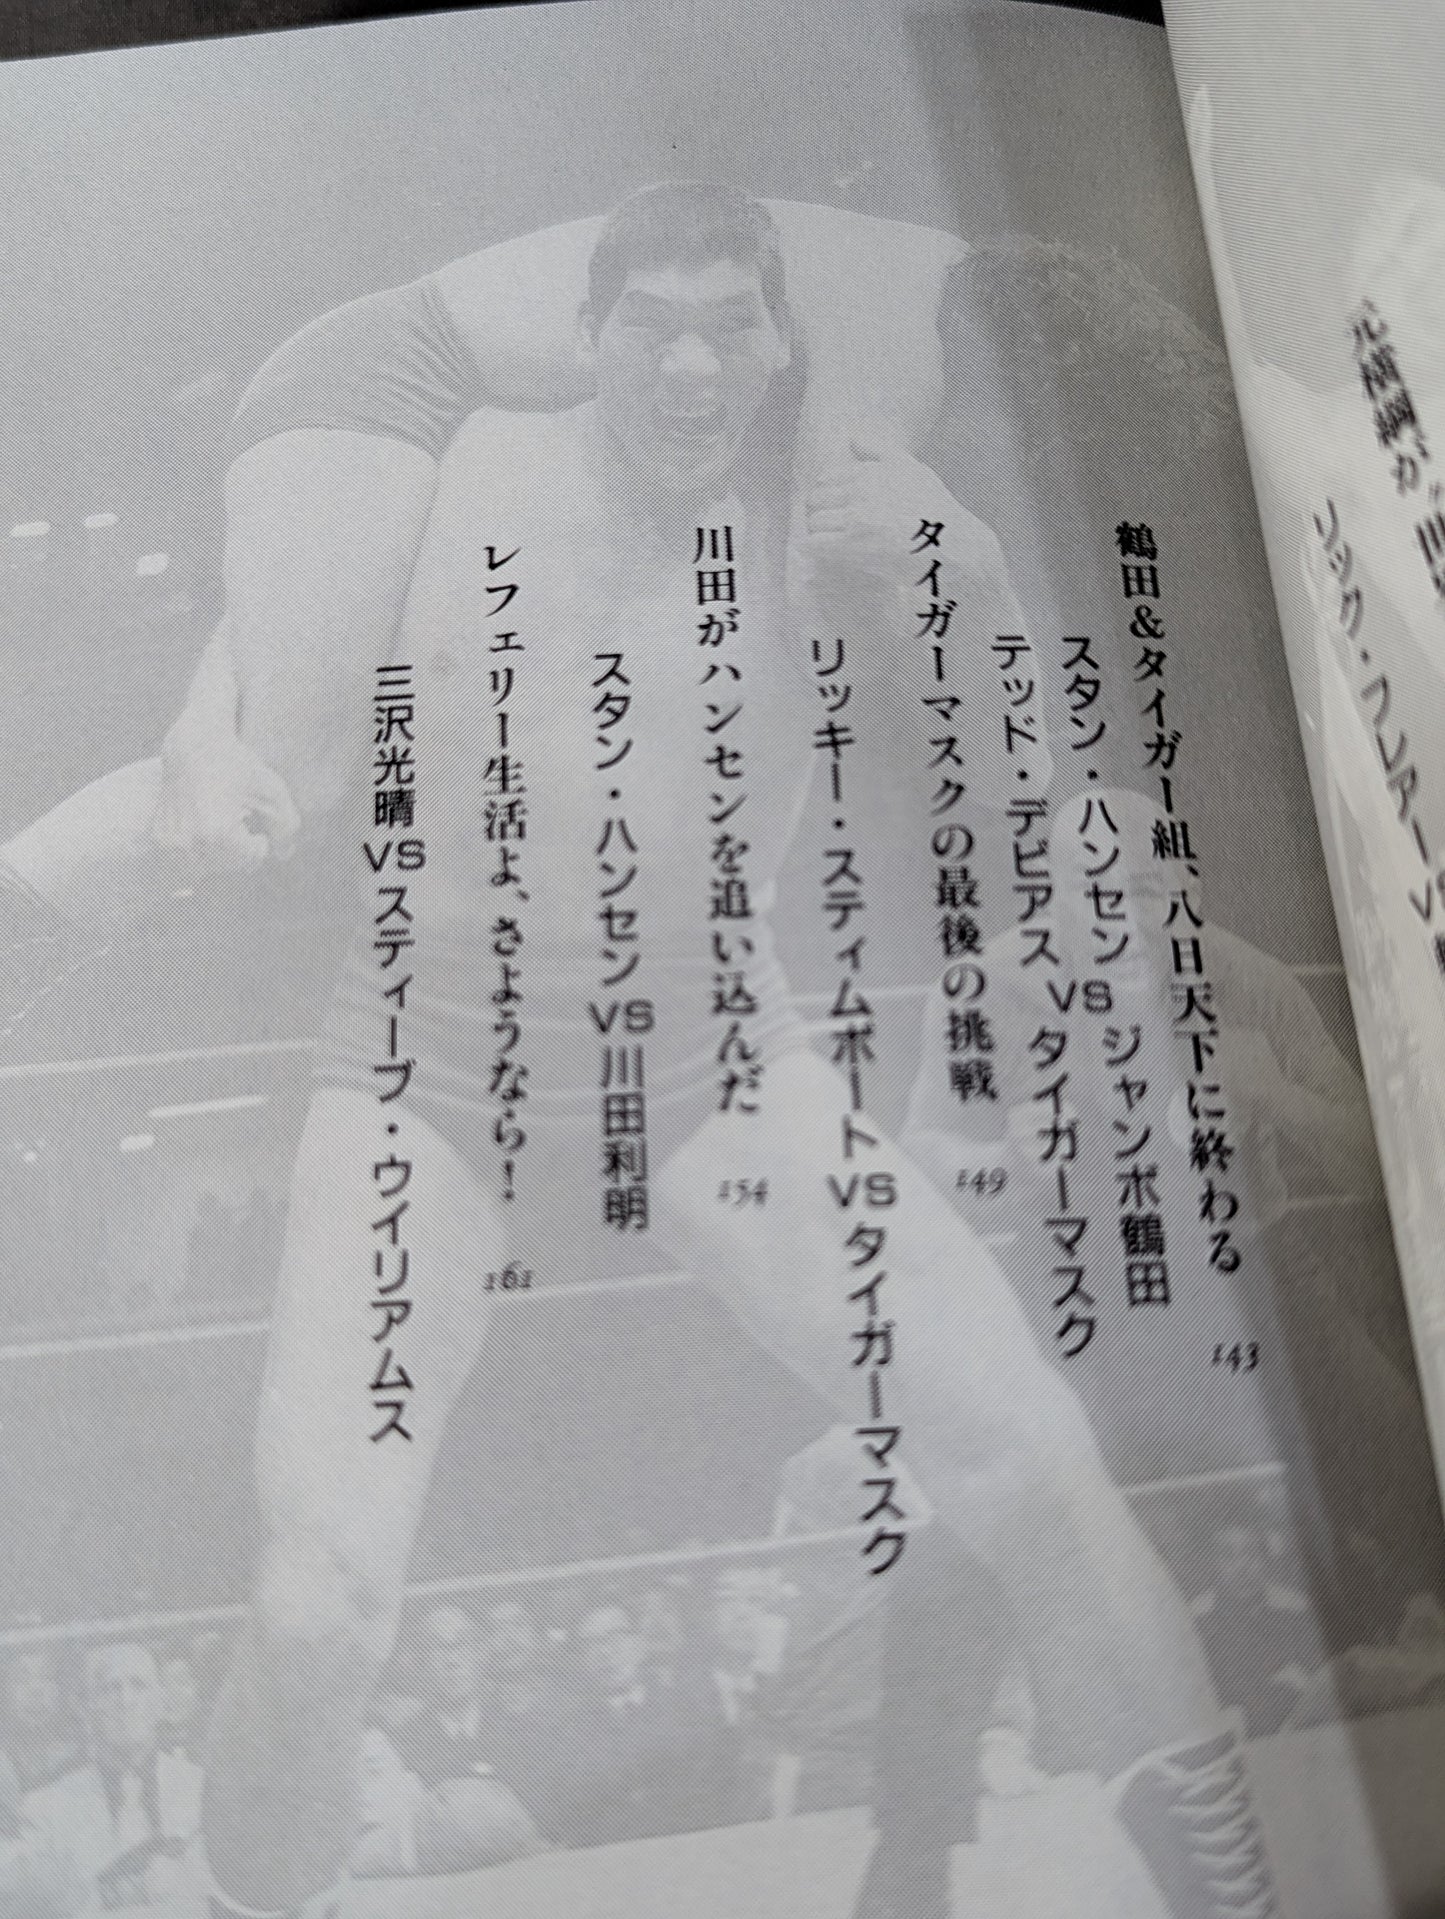 リック・フレアー VS
鶴田＆タイガー組、八日天下に終わる 143
スタン・ハンセン
テッド・デビアス
VS
ジャンボ鶴田
タイガーマスク
タイガーマスクの最後の挑戦 149
リッキー・スティムボートVSタイガーマスク
川田がハンセンを追い込んだ 154
スタン・ハンセンVS川田利明
レフェリー生活よ、さようなら！ 161
三沢光晴VSスティーブ・ウイリアムス